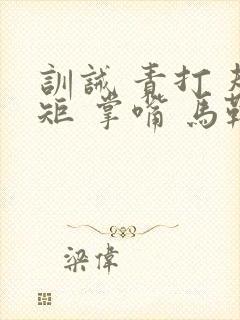 訓誡 責打 規
矩 掌嘴 馬鞭
梁偉